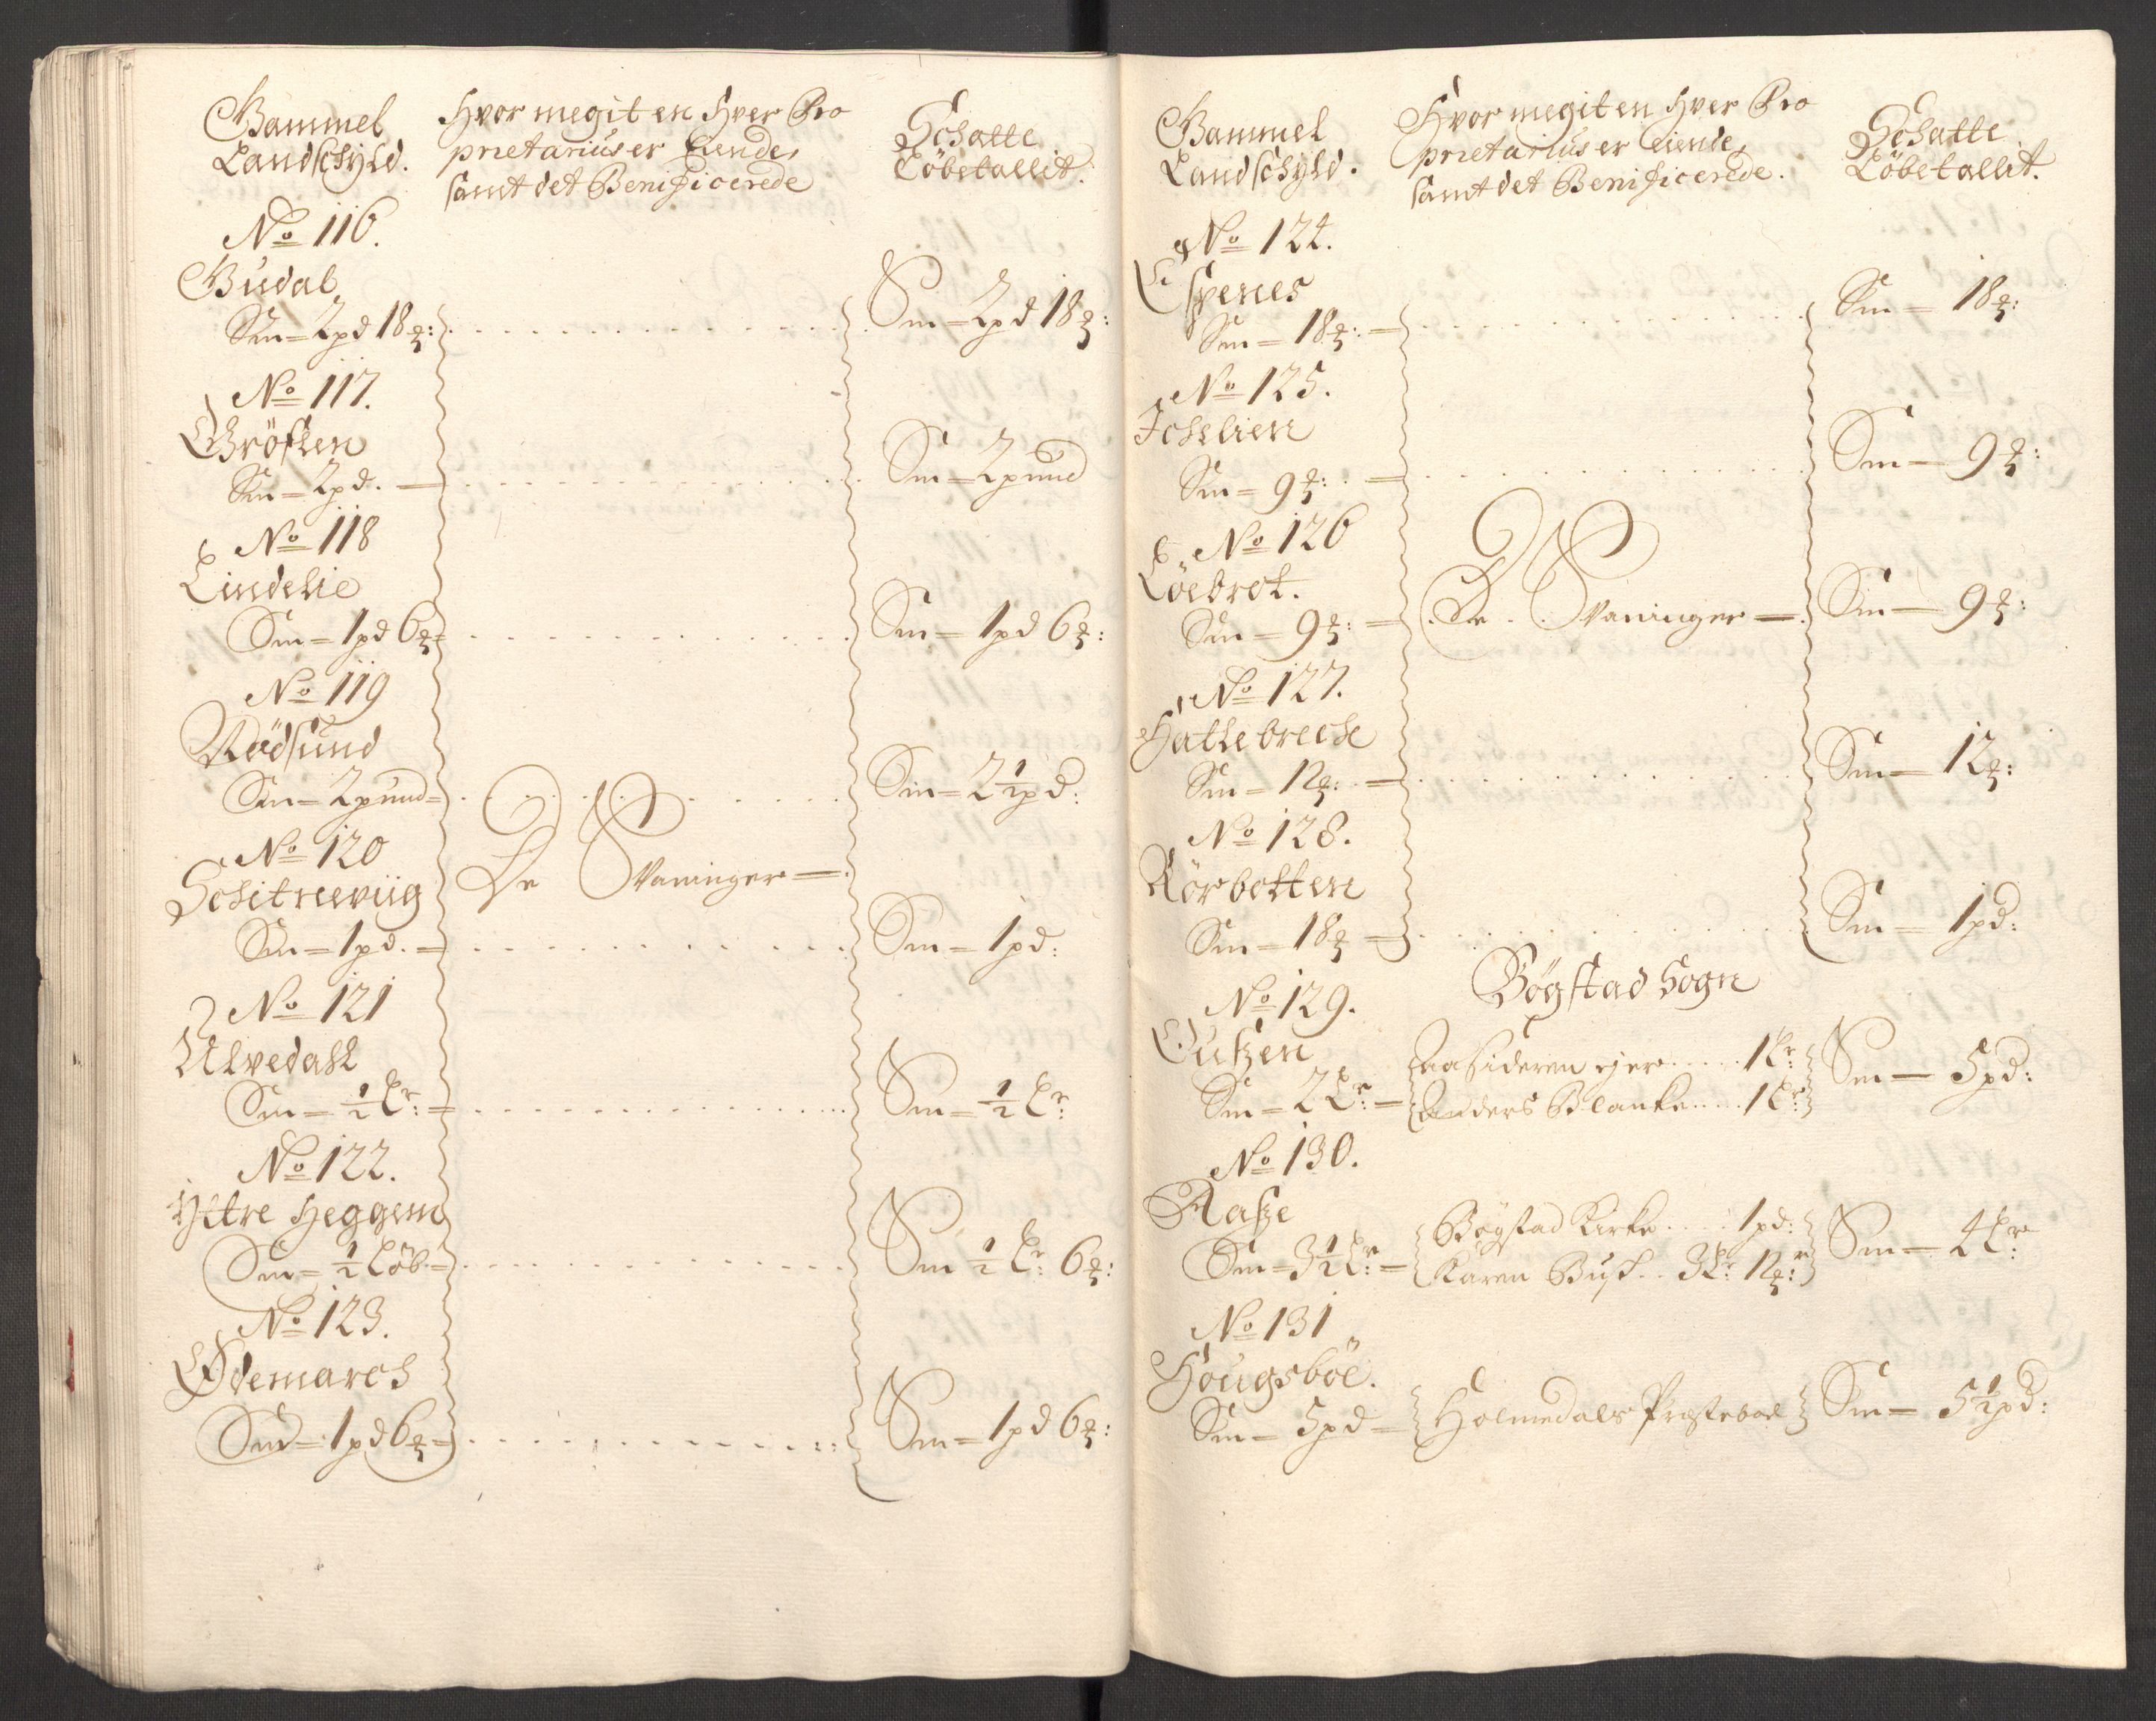 Gammel
Landschÿld.
Hvor megit en hver Pro
prietarius er Eiende,
samt det Benificerede
Schatte
Löbetallit.
No 116.
Budal
Sm = 2 pd 18 ℔:
Sm = 2 pd 18 ℔:
No 117.
Gröften
Sm = 2 pd.
Sm = 2 pund
No 118
Lindelie
Sm = 1 pd 6 ℔
Sm = 1 pd 6 ℔:
No 119
Rödsund
Sm = 2 pund
Sm = 2 1/2 pd:
No 120
Schitreeviig
De Svaninger
Sm = 1 pd.
Sm = 1 pd:
No 121
Ulvedahl
Sm = 1/2 Lr:
Sm = 1/2 Lr:
No 122.
Ÿttre Heggem
Sm = 1/2 Löb
Sm 1/2 Lr: 6 ℔:
No 123.
Ødemarch
Sm = 1 pd 6 ℔
Sm = 1 pd 6 ℔:
Gammel
Landschÿld.
Hvor megit en hver Pro
prietarius er eiende,
samt det Benificerede.
Schatte
Löbetallit.
No 124.
Espenes
Sm = 18 ℔:
Sm = 18 ℔:
No 125.
Ichelien
Sm = 9 ℔:
Sm = 9 ℔:
No 126
Löebrot.
Sm = 9 ℔:
De Svaninger
Sm = 9 ℔:
No 127.
Hatlebrech
Sm = 12 ℔:
Sm = 12 ℔:
No 128.
Rörbotten
Sm = 18 ℔
Sm = 1 pd:
Bögstad Sogn
No 129.
Sm = 2 Lr:
Aasideren ejer 1 Lr:
Anders Blanke 1 Lr:
Sm = 5 pd:
No 130.
Sm = 3 1/2 Lr:
Bögstad Kirke 1 pd:
Karen Busch 3 Lr: 12 ℔:
Sm = 4 Lr:
No 131
Hougsböe.
Sm = 5 pd
Holmedals Præsteboel
Sm = 5 1/2 pd: